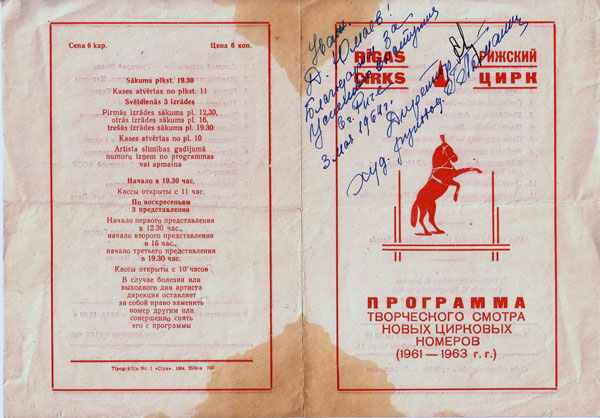 Cena 6 kap. Цена 6 коп.
Sākums plkst. 19.30
Kases atvērtas no plkst. 11
Svētdienās 3 izrādes
Pirmās izrādes sākums pl. 12.30,
otrās izrādes sākums pl. 16,
trešās izrādes sākums pl. 19.30
Kases atvērtas no pl. 10
Artista slimības gadījumā
numuru izņem no programmas
vai apmaina
Начало в 19.30 час.
Кассы открыты с 11 час.
По воскресеньям
3 представления
Начало первого представления
в 12.30 час.,
начало второго представления
в 16 час.,
начало третьего представления
в 19.30 час.
Кассы открыты с 10 часов
В случае болезни или
выходного дня артиста
дирекция оставляет
за собой право заменить
номер другим или
совершенно снять
его с программы
Tipogrāfija Nr. 1 «Cīņa». 1964.
Уваж.
Д. Юмаев!
Благодарим за
выступления
в г. Риге
3 мая 1964 г.
Директор
худ.
RĪGAS
CIRKS
РИЖСКИЙ
ЦИРК
ПРОГРАММА
ТВОРЧЕСКОГО СМОТРА
НОВЫХ ЦИРКОВЫХ
НОМЕРОВ
(1961—1963 г. г.)